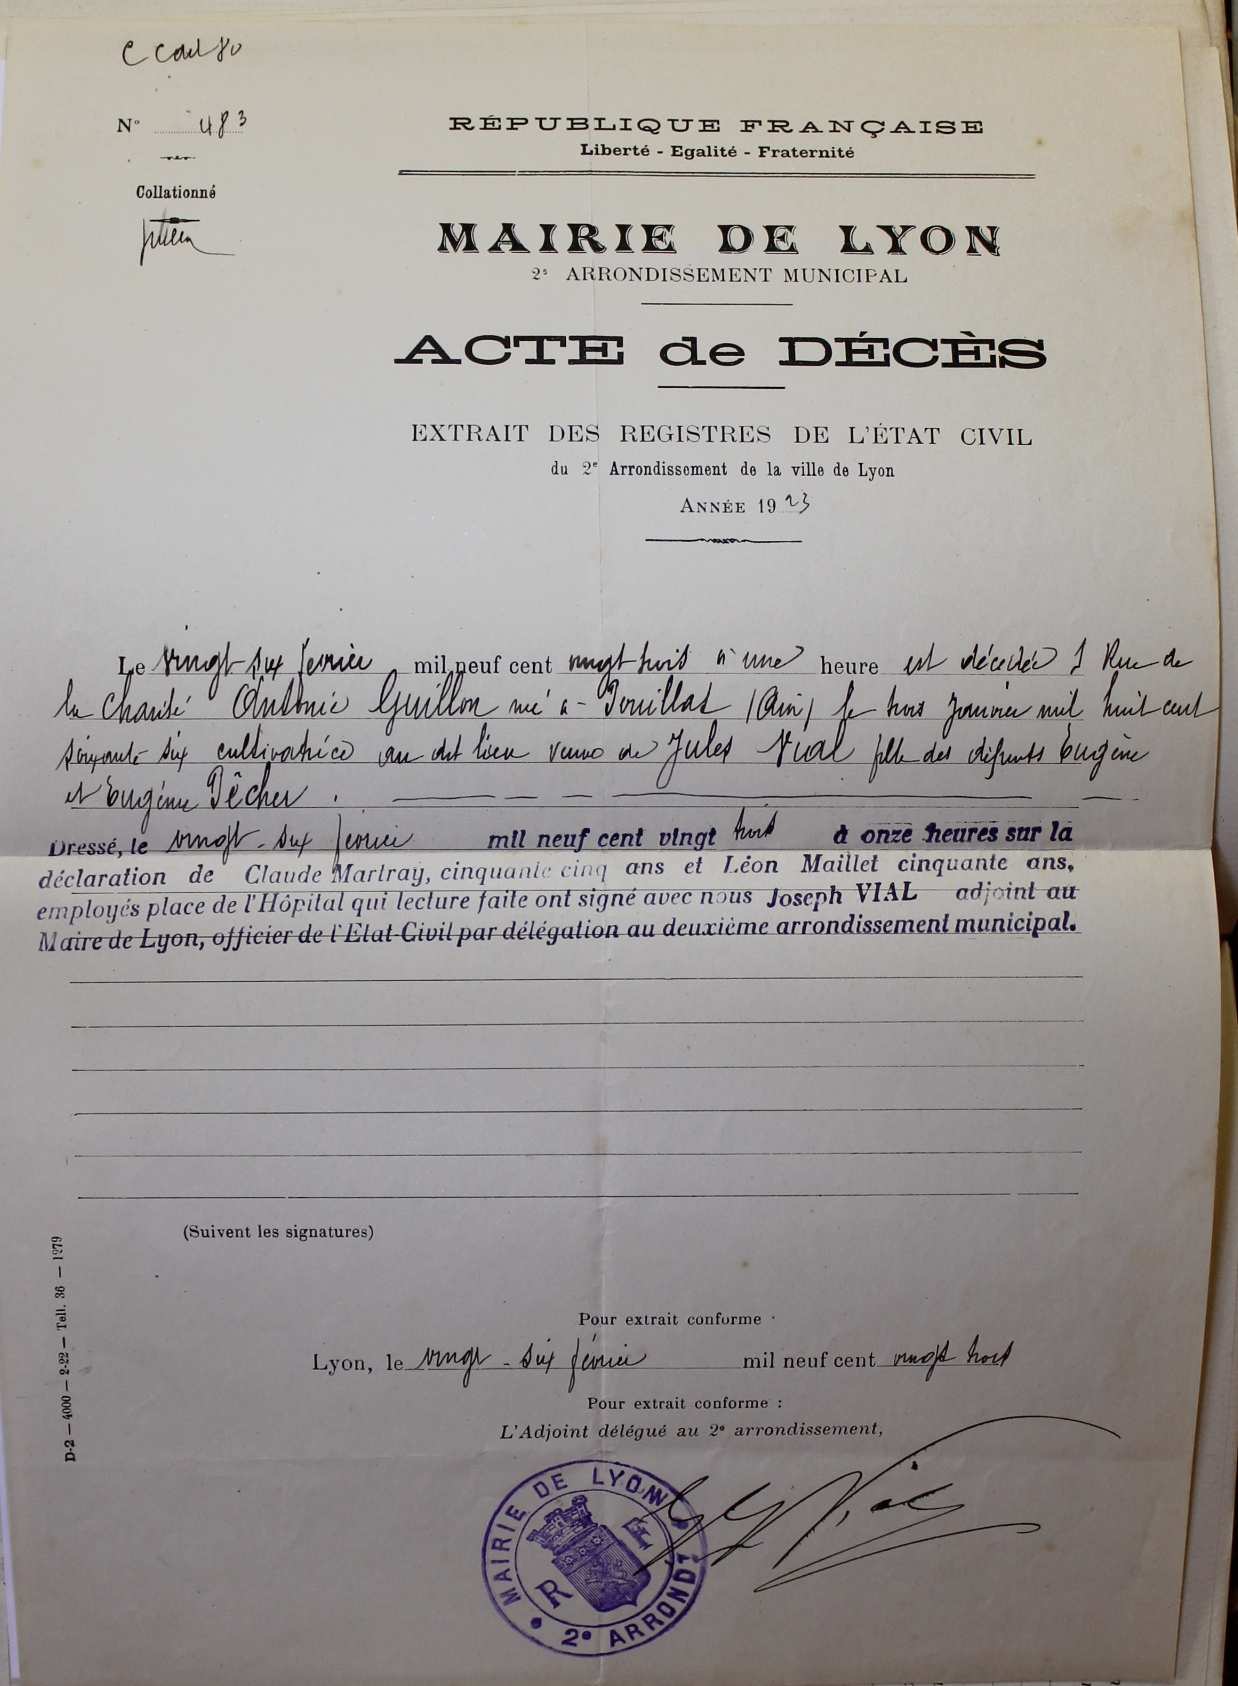 N° 483
Collationné
RÉPUBLIQUE FRANÇAISE
Liberté - Egalité - Fraternité
MAIRIE DE LYON
2e ARRONDISSEMENT MUNICIPAL
ACTE de DÉCÈS
EXTRAIT DES REGISTRES DE L'ÉTAT CIVIL
du 2e Arrondissement de la ville de Lyon
ANNÉE 1923
Le vingt six février mil neuf cent vingt trois à une heure est décédée 1 Rue de
la Charité Antonie Guillon né à Pouillat (Ain) le trois janvier mil huit cent
soixante six cultivatrice au dit lieu veuve de Jules Vial fille des défunts Eugène
et Eugénie Pêcher.
Dressé, le vingt-six février mil neuf cent vingt trois à onze heures sur la
déclaration de Claude Martray, cinquante cinq ans et Léon Maillet cinquante ans,
employés place de l'Hôpital qui lecture faite ont signé avec nous Joseph VIAL adjoint au
Maire de Lyon, officier de l'Etat-Civil par délégation au deuxième arrondissement municipal.
(Suivent les signatures)
Pour extrait conforme
Lyon, le vingt-six février mil neuf cent vingt trois
Pour extrait conforme :
L'Adjoint délégué au 2e arrondissement,
MAIRIE DE LYON
R F
2e ARRONDt
D-2 — 4000 — 2-22 — Tell. 36 — 1279